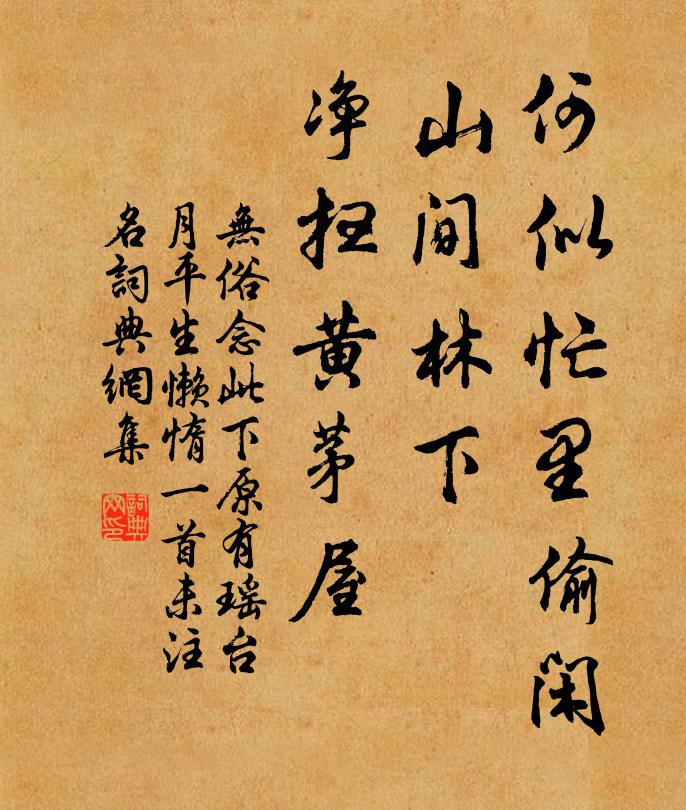 何似忙里偷闲
山间林下
净扫黄茅屋
無俗念此下原有瑶台
月平生懒惰一首未注
名詞典網集
詞典網印